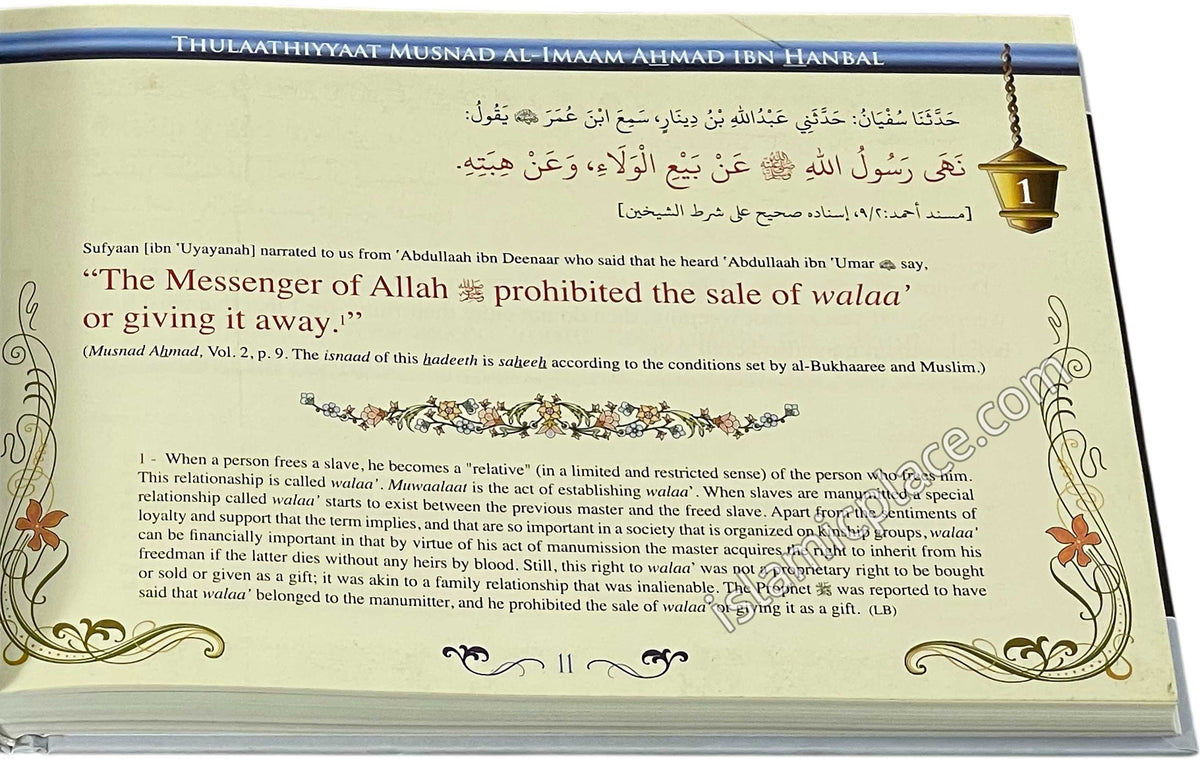 THULAATHIYYAAT MUSNAD AL-IMAAM AHMAD IBN HANBAL
حَدَّثَنَا سُفْيَانُ: حَدَّثَنِي عَبْدُاللهِ بْنُ دِينَارٍ، سَمِعَ ابْنَ عُمَرَ يَقُولُ:
نَهَى رَسُولُ اللهِ ﷺ عَنْ بَيْعِ الْوَلَاءِ، وَعَنْ هِبَتِهِ.
1
[مسند أحمد:٩/٢، إسناده صحيح على شرط الشيخين]
Sufyaan [ibn 'Uyayanah] narrated to us from 'Abdullaah ibn Deenaar who said that he heard 'Abdullaah ibn 'Umar say,
“The Messenger of Allah ﷺ prohibited the sale of walaa’
or giving it away.¹”
(Musnad Ahmad, Vol. 2, p. 9. The isnaad of this hadeeth is saheeh according to the conditions set by al-Bukhaaree and Muslim.)
1 - When a person frees a slave, he becomes a "relative" (in a limited and restricted sense) of the person who frees him.
This relationaship is called walaa’. Muwaalaat is the act of establishing walaa’. When slaves are manumitted a special
relationship called walaa’ starts to exist between the previous master and the freed slave. Apart from the sentiments of
loyalty and support that the term implies, and that are so important in a society that is organized on kinship groups, walaa’
can be financially important in that by virtue of his act of manumission the master acquires the right to inherit from his
freedman if the latter dies without any heirs by blood. Still, this right to walaa’ was not a proprietary right to be bought
or sold or given as a gift; it was akin to a family relationship that was inalienable. The Prophet ﷺ was reported to have
said that walaa’ belonged to the manumitter, and he prohibited the sale of walaa’ or giving it as a gift. (LB)
11
islamicplace.com